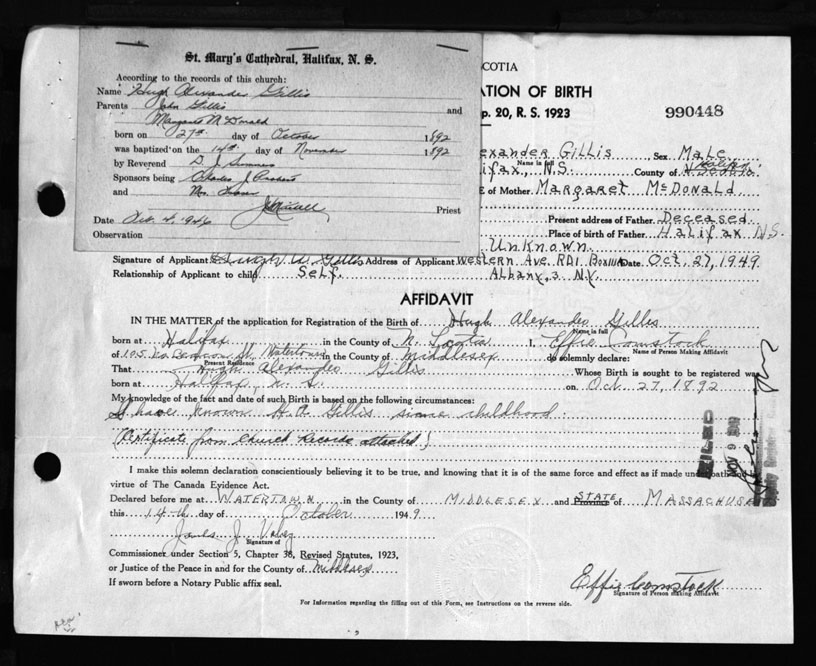 St. Mary's Cathedral, Halifax, N. S.
According to the records of this church:
Name Hugh Alexander Gillis
Parents John Gillis and
Margaret McDonald
born on 27th day of October 1892
was baptized on the 14th day of November 1892
by Reverend D. J.
Sponsors being Charles J.
and Mrs.
Priest
Date Oct. 4, 1946
Observation
SCOTIA
ATION OF BIRTH
p. 20, R. S. 1923
990448
exander Gillis Sex Male
Name in full
ifax, N.S. County of Halifax
e of Mother Margaret McDonald
Present address of Father Deceased
Place of birth of Father Halifax N.S.
Unknown
Signature of Applicant Hugh A. Gillis Address of Applicant Western Ave. RD1 Box Date Oct. 27, 1949
Relationship of Applicant to child Self. Albany, 3 N.Y.
AFFIDAVIT
IN THE MATTER of the application for Registration of the Birth of Hugh Alexander Gillis
Name in full
born at Halifax in the County of N. Scotia I, Effie Comstock
Name of Person Making Affidavit
of 105 Beacon St. Watertown in the County of Middlesex do solemnly declare:
Present Residence
That Hugh Alexander Gillis Whose Birth is sought to be registered was
born at Halifax N. S. on Oct 27, 1892
My knowledge of the fact and date of such Birth is based on the following circumstances:
I have known H. A. Gillis since childhood
(Certificate from Church Records attached)
I make this solemn declaration conscientiously believing it to be true, and knowing that it is of the same force and effect as if made under oath and by
virtue of The Canada Evidence Act.
Declared before me at Watertown in the County of Middlesex and Province STATE of Massachuse
this 14th day of October 1949
James J.
Signature of
Commissioner under Section 5, Chapter 38, Revised Statutes, 1923,
or Justice of the Peace in and for the County of Middlesex
If sworn before a Notary Public affix seal.
Effie Comstock
Signature of Person making Affidavit
For Information regarding the filling out of this Form, see Instructions on the reverse side.
FILED
NOV 9 1949